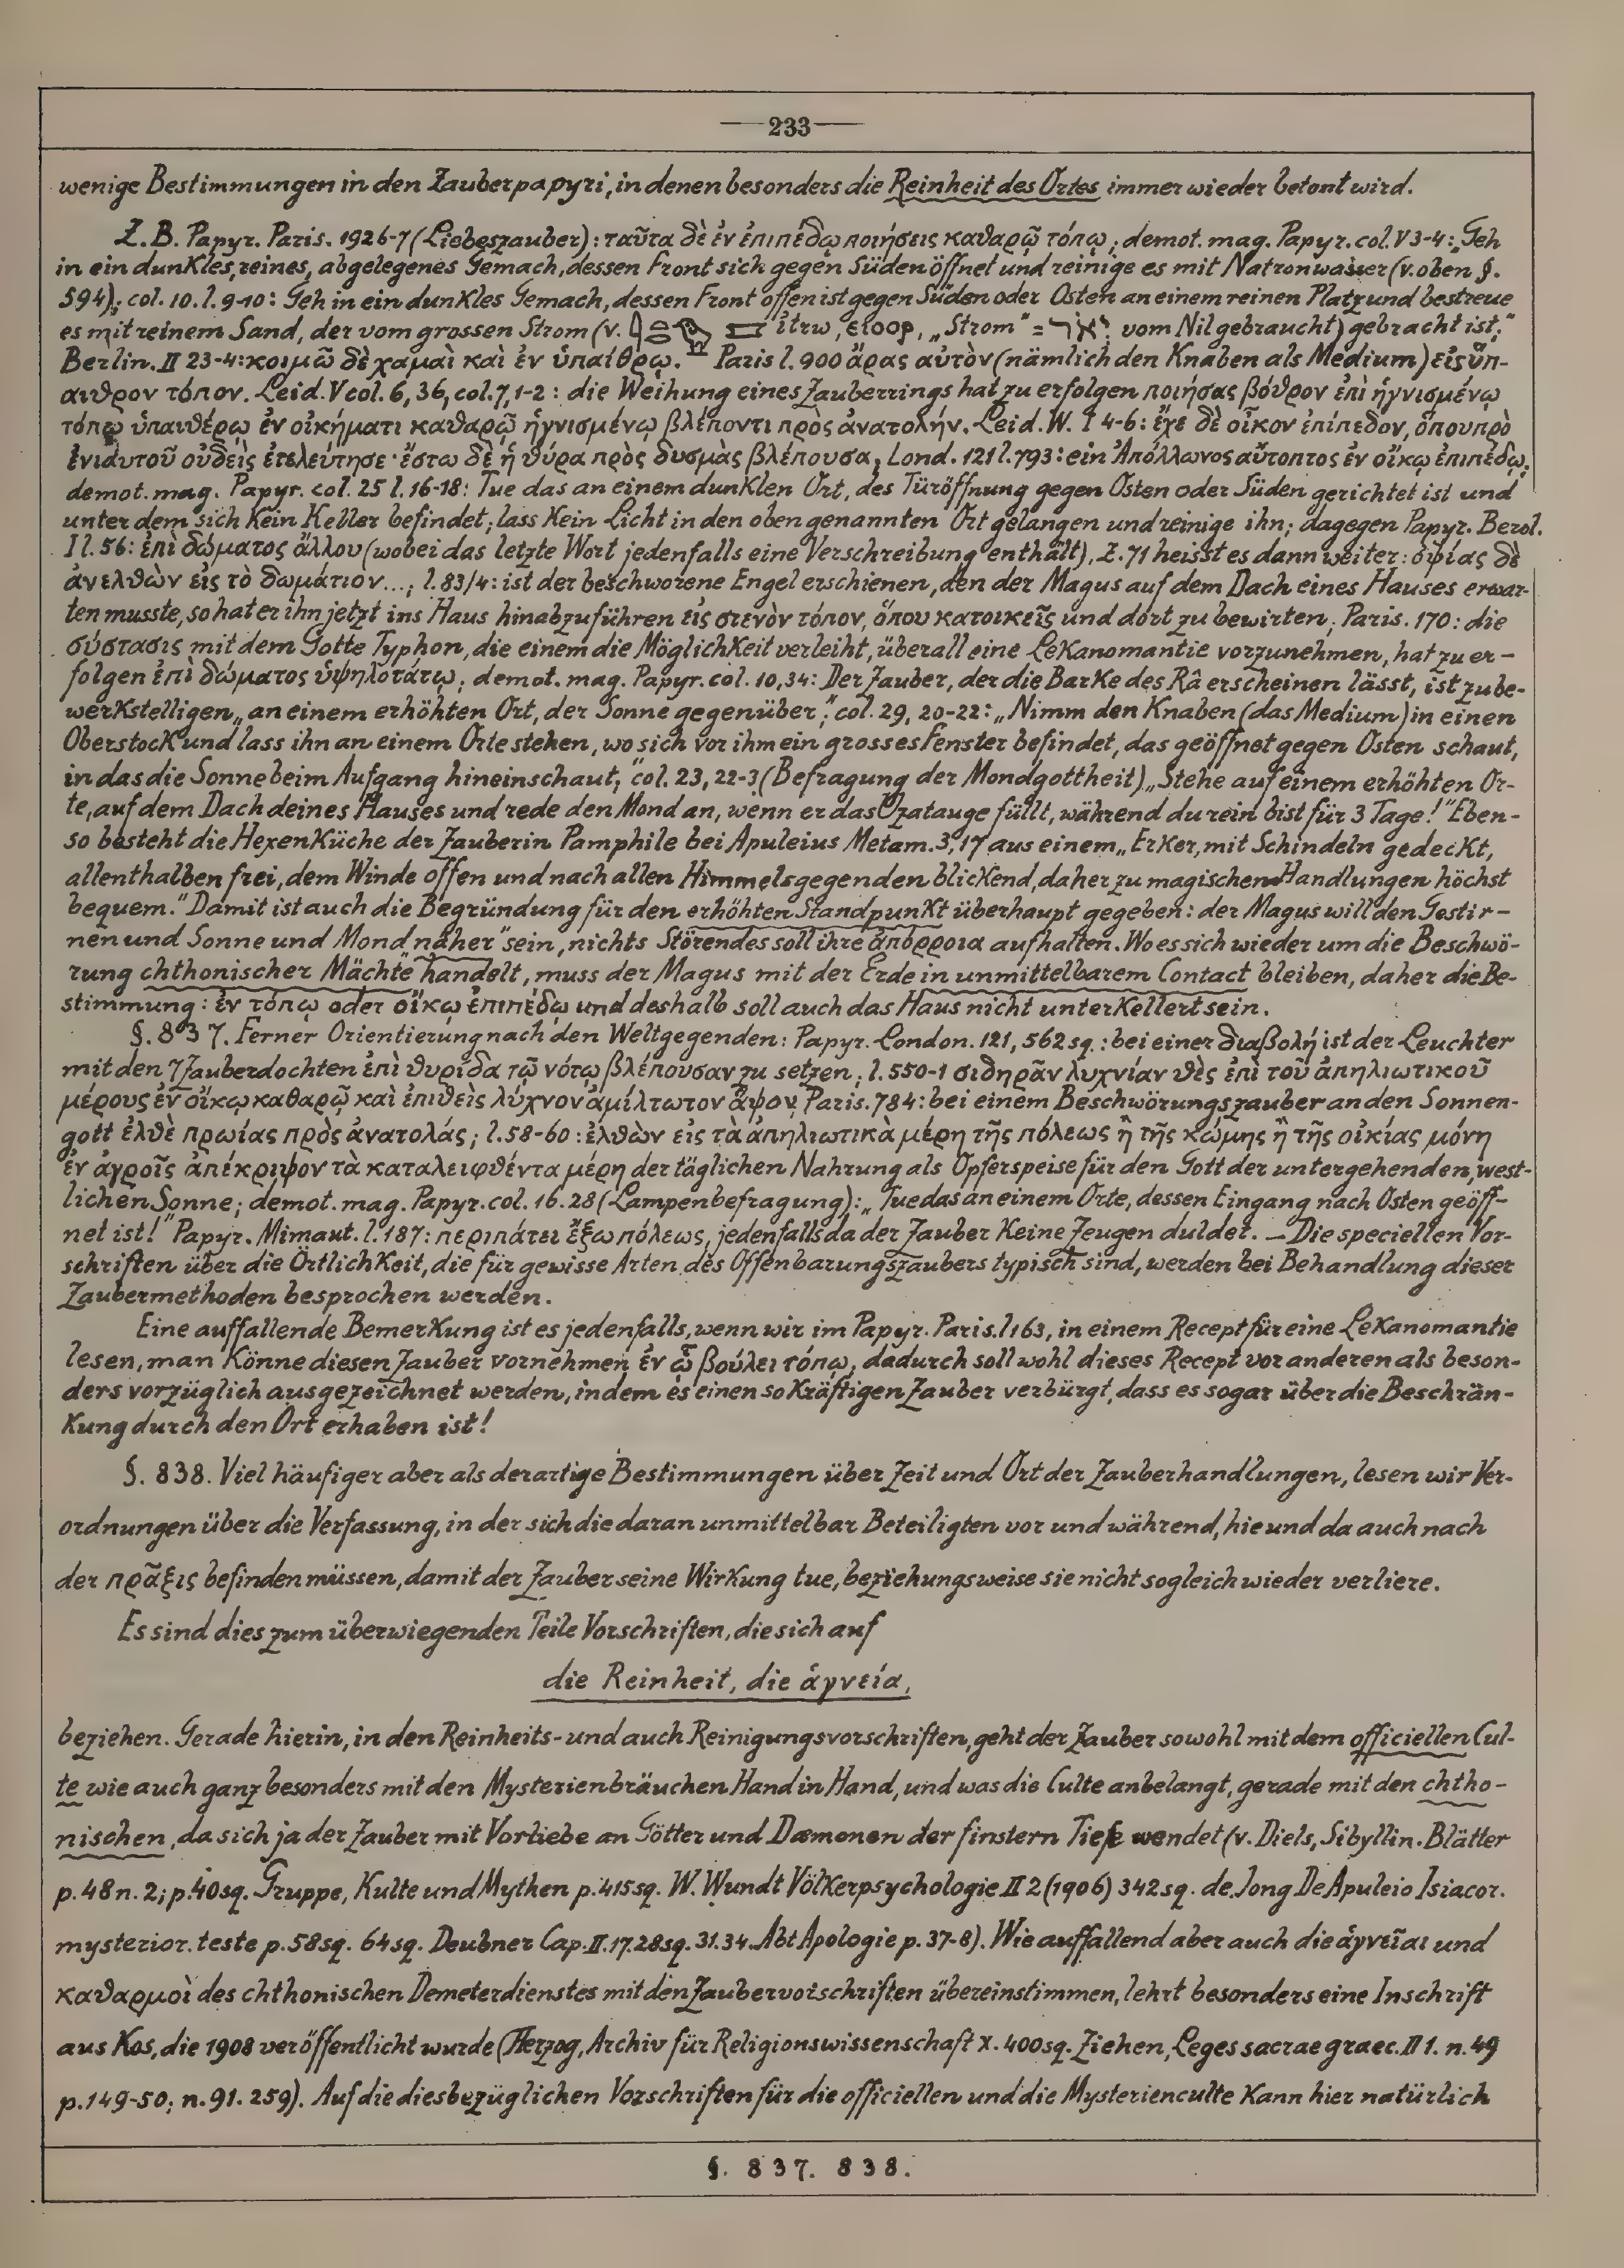 —233—
wenige Bestimmungen in den Zauberpapyri, in denen besonders die Reinheit des Ortes immer wieder betont wird.
Z. B. Papyr. Paris. 1926-7 (Liebeszauber): ταῦτα δὲ ἐν ἐπιπέδῳ ποιήσεις καθαρῷ τόπῳ; demot. mag. Papyr. col. V 3-4: „Geh
in ein dunkles, reines, abgelegenes Gemach, dessen Front sich gegen Süden öffnet und reinige es mit Natronwasser (v. oben §.
594); col. 10. l. 9-10: Geh in ein dunkles Gemach, dessen Front offen ist gegen Süden oder Osten an einem reinen Platz und bestreue
es mit reinem Sand, der vom grossen Strom (v. ἰtrw, ⲉⲓⲟⲟⲣ, „Strom" = יְאֹר vom Nil gebraucht) gebracht ist;"
Berlin. II 23-4: κοιμῶ δὲ χαμαὶ καὶ ἐν ὑπαίθρῳ. — Paris l. 900 ἄρας αὐτὸν (nämlich den Knaben als Medium) εἰς ὕπ-
αιθρον τόπον. Leid. V col. 6, 36, col. 7, 1-2: die Weihung eines Zauberrings hat zu erfolgen ποιήσας βόθρον ἐπὶ ἡγνισμένῳ
τόπῳ ὑπαιθέρῳ ἐν οἰκήματι καθαρῷ ἡγνισμένῳ βλέποντι πρὸς ἀνατολήν. Leid. W. I 4-6: ἔχε δὲ οἶκον ἐπίπεδον, ὅπου πρὸ
ἐνιαυτοῦ οὐδεὶς ἐτελεύτησε· ἔστω δὲ ἡ θύρα πρὸς δυσμὰς βλέπουσα, Lond. 121 l. 793: ein Ἀπόλλωνος αὔτοπτος ἐν οἴκῳ ἐπιπέδῳ;
demot. mag. Papyr. col. 25 l. 16-18: Tue das an einem dunklen Ort, des Türöffnung gegen Osten oder Süden gerichtet ist und
unter dem sich kein Keller befindet; lass kein Licht in den oben genannten Ort gelangen und reinige ihn; dagegen Papyr. Berol.
I l. 56: ἐπὶ δώματος ἄλλου (wobei das letzte Wort jedenfalls eine Verschreibung enthält), Z. 71 heisst es dann weiter: ὀψίας δὲ
ἀνελθὼν εἰς τὸ δωμάτιον...; l. 83/4: ist der beschworene Engel erschienen, den der Magus auf dem Dach eines Hauses erwar-
ten musste, so hat er ihn jetzt ins Haus hinabzuführen εἰς στενὸν τόπον, ὅπου κατοικεῖς und dort zu bewirten; Paris. 170: die
σύστασις mit dem Gotte Typhon, die einem die Möglichkeit verleiht, überall eine Lekanomantie vorzunehmen, hat zu er-
folgen ἐπὶ δώματος ὑψηλοτάτῳ; demot. mag. Papyr. col. 10, 34: Der Zauber, der die Barke des Râ erscheinen lässt, ist zu be-
werkstelligen „an einem erhöhten Ort, der Sonne gegenüber;" col. 29, 20-22: „Nimm den Knaben (das Medium) in einen
Oberstock und lass ihn an einem Orte stehen, wo sich vor ihm ein grosses Fenster befindet, das geöffnet gegen Osten schaut,
in das die Sonne beim Aufgang hineinschaut;" col. 23, 22-3 (Befragung der Mondgottheit) „Stehe auf einem erhöhten Or-
te, auf dem Dach deines Hauses und rede den Mond an, wenn er das Uzatauge füllt, während du rein bist für 3 Tage!" Eben-
so besteht die Hexenküche der Zauberin Pamphile bei Apuleius Metam. 3, 17 aus einem „Erker, mit Schindeln gedeckt,
allenthalben frei, dem Winde offen und nach allen Himmelsgegenden blickend, daher zu magischen Handlungen höchst
bequem." Damit ist auch die Begründung für den erhöhten Standpunkt überhaupt gegeben: der Magus will den Gestir-
nen und Sonne und Mond „näher" sein, nichts Störendes soll ihre ἀπόρροια aufhalten. Wo es sich wieder um die Beschwö-
rung chthonischer Mächte handelt, muss der Magus mit der Erde in unmittelbarem Contact bleiben, daher die Be-
stimmung: ἐν τόπῳ oder οἴκῳ ἐπιπέδῳ und deshalb soll auch das Haus nicht unterkellert sein.
§. 837. Ferner Orientierung nach den Weltgegenden: Papyr. London. 121, 562 sq.: bei einer διαβολή ist der Leuchter
mit den 7 Zauberdochten ἐπὶ θυρίδα τῷ νότῳ βλέπουσαν zu setzen; l. 550-1 σιδηρᾶν λυχνίαν θὲς ἐπὶ τοῦ ἀπηλιωτικοῦ
μέρους ἐν οἴκῳ καθαρῷ καὶ ἐπιθεὶς λύχνον ἀμίλτωτον ἅψον, Paris. 784: bei einem Beschwörungszauber an den Sonnen-
gott ἐλθὲ πρωίας πρὸς ἀνατολάς; l. 58-60: ἐλθὼν εἰς τὰ ἀπηλιωτικὰ μέρη τῆς πόλεως ἢ τῆς κώμης ἢ τῆς οἰκίας μόνη
ἐν ἀγροῖς ἀπέκριψον τὰ καταλειφθέντα μέρη der täglichen Nahrung als Opferspeise für den Gott der untergehenden, west-
lichen Sonne; demot. mag. Papyr. col. 16. 28 (Lampenbefragung): „Tue das an einem Orte, dessen Eingang nach Osten geöff-
net ist!" Papyr. Mimaut. l. 187: περιπάτει ἔξω πόλεως, jedenfalls da der Zauber keine Zeugen duldet. — Die speciellen Vor-
schriften über die Örtlichkeit, die für gewisse Arten des Offenbarungszaubers typisch sind, werden bei Behandlung dieser
Zaubermethoden besprochen werden.
Eine auffallende Bemerkung ist es jedenfalls, wenn wir im Papyr. Paris. l 163, in einem Recept für eine Lekanomantie
lesen, man könne diesen Zauber vornehmen ἐν ᾧ βούλει τόπῳ, dadurch soll wohl dieses Recept vor anderen als beson-
ders vorzüglich ausgezeichnet werden, indem es einen so kräftigen Zauber verbürgt, dass es sogar über die Beschrän-
kung durch den Ort erhaben ist!
§. 838. Viel häufiger aber als derartige Bestimmungen über Zeit und Ort der Zauberhandlungen, lesen wir Ver-
ordnungen über die Verfassung, in der sich die daran unmittelbar Beteiligten vor und während, hie und da auch nach
der πρᾶξις befinden müssen, damit der Zauber seine Wirkung tue, beziehungsweise sie nicht sogleich wieder verliere.
Es sind dies zum überwiegenden Teile Vorschriften, die sich auf
die Reinheit, die ἁγνεία,
beziehen. Gerade hierin, in den Reinheits- und auch Reinigungsvorschriften, geht der Zauber sowohl mit dem officiellen Cul-
te wie auch ganz besonders mit den Mysterienbräuchen Hand in Hand, und was die Culte anbelangt, gerade mit den chtho-
nischen, da sich ja der Zauber mit Vorliebe an Götter und Dæmonen der finstern Tiefe wendet (v. Diels, Sibyllin. Blätter
p. 48 n. 2; p. 40 sq. Gruppe, Kulte und Mythen p. 415 sq. W. Wundt Völkerpsychologie II 2 (1906) 342 sq. de Jong De Apuleio Isiacor.
mysterior. teste p. 58 sq. 64 sq. Deubner Cap. II. 17. 28 sq. 31. 34. Abt Apologie p. 37-8). Wie auffallend aber auch die ἁγνεῖαι und
καθαρμοὶ des chthonischen Demeterdienstes mit den Zaubervorschriften übereinstimmen, lehrt besonders eine Inschrift
aus Kos, die 1908 veröffentlicht wurde (Herzog, Archiv für Religionswissenschaft X. 400 sq. Ziehen, Leges sacrae graec. II 1. n. 49
p. 149-50; n. 91. 259). Auf die diesbezüglichen Vorschriften für die officiellen und die Mysterienculte kann hier natürlich
§. 837. 838.